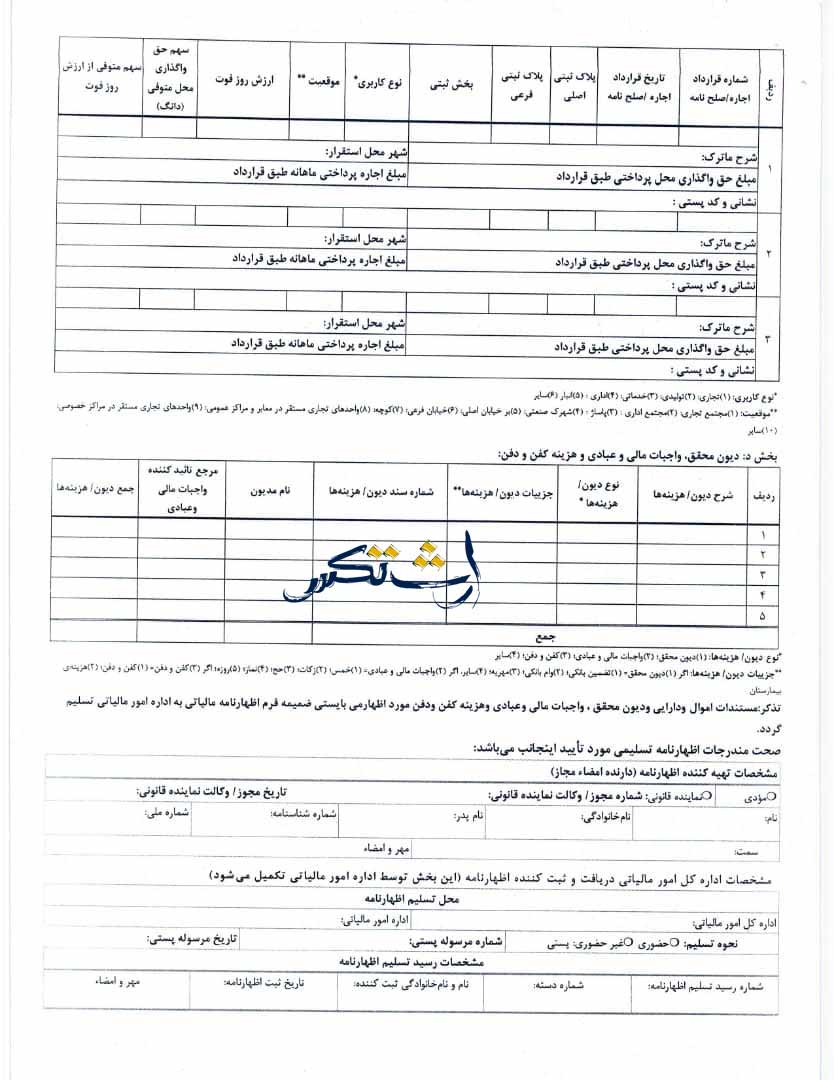 ردیف شماره قرارداد اجاره/صلح نامه تاریخ قرارداد اجاره /صلح نامه پلاک ثبتی اصلی پلاک ثبتی فرعی بخش ثبتی نوع کاربری* موقعیت ** ارزش روز فوت سهم حق واگذاری محل متوفی (دانگ) سهم متوفی از ارزش روز فوت
۱
شرح ماترک: شهر محل استقرار:
مبلغ حق واگذاری محل پرداختی طبق قرارداد مبلغ اجاره پرداختی ماهانه طبق قرارداد
نشانی و کد پستی :
۲
شرح ماترک: شهر محل استقرار:
مبلغ حق واگذاری محل پرداختی طبق قرارداد مبلغ اجاره پرداختی ماهانه طبق قرارداد
نشانی و کد پستی :
۳
شرح ماترک: شهر محل استقرار:
مبلغ حق واگذاری محل پرداختی طبق قرارداد مبلغ اجاره پرداختی ماهانه طبق قرارداد
نشانی و کد پستی :
*نوع کاربری: (۱)تجاری: (۲)تولیدی: (۳)خدماتی: (۴)اداری : (۵)انبار (۶)سایر
**موقعیت: (۱)مجتمع تجاری: (۲)مجتمع اداری : (۳)پاساژ : (۴)شهرک صنعتی: (۵)بر خیابان اصلی: (۶)خیابان فرعی: (۷)کوچه: (۸)واحدهای تجاری مستقر در معابر و مراکز عمومی: (۹)واحدهای تجاری مستقر در مراکز خصوصی:
(۱۰)سایر
بخش د: دیون محقق، واجبات مالی و عبادی و هزینه کفن و دفن:
ردیف شرح دیون/ هزینه‌ها نوع دیون/ هزینه‌ها * جزییات دیون/ هزینه‌ها** شماره سند دیون/ هزینه‌ها نام مدیون مرجع تائید کننده واجبات مالی وعبادی جمع دیون/ هزینه‌ها
۱
۲
۳
۴
۵
جمع
*نوع دیون/ هزینه‌ها: (۱)دیون محقق: (۲)واجبات مالی و عبادی: (۳)کفن و دفن: (۴)سایر
**جزییات دیون/ هزینه‌ها: اگر (۱)دیون محقق= (۱)تضمین بانکی: (۲)وام بانکی: (۳)مهریه: (۴)سایر. اگر (۲)واجبات مالی و عبادی= (۱)خمس: (۲)زکات: (۳)حج: (۴)نماز: (۵)روزه: اگر (۳)کفن و دفن= (۱)کفن و دفن: (۲)هزینه‌ی
بیمارستان
تذکر:مستندات اموال ودارایی ودیون محقق ، واجبات مالی وعبادی وهزینه کفن ودفن مورد اظهارمی بایستی ضمیمه فرم اظهارنامه مالیاتی به اداره امور مالیاتی تسلیم
گردد.
صحت مندرجات اظهارنامه تسلیمی مورد تأیید اینجانب می‌باشد:
مشخصات تهیه کننده اظهارنامه (دارنده امضاء مجاز)
مؤدی نماینده قانونی: شماره مجوز/ وکالت نماینده قانونی: تاریخ مجوز/ وکالت نماینده قانونی:
نام: نام‌خانوادگی: نام پدر: شماره شناسنامه: شماره ملی:
سمت: مهر و امضاء
مشخصات اداره کل امور مالیاتی دریافت و ثبت کننده اظهارنامه (این بخش توسط اداره امور مالیاتی تکمیل می‌شود)
محل تسلیم اظهارنامه
اداره کل امور مالیاتی: اداره امور مالیاتی:
نحوه تسلیم: حضوری غیر حضوری: پستی شماره مرسوله پستی: تاریخ مرسوله پستی:
مشخصات رسید تسلیم اظهارنامه
شماره رسید تسلیم اظهارنامه: شماره دسته: نام و نام‌خانوادگی ثبت کننده: تاریخ ثبت اظهارنامه: مهر و امضاء